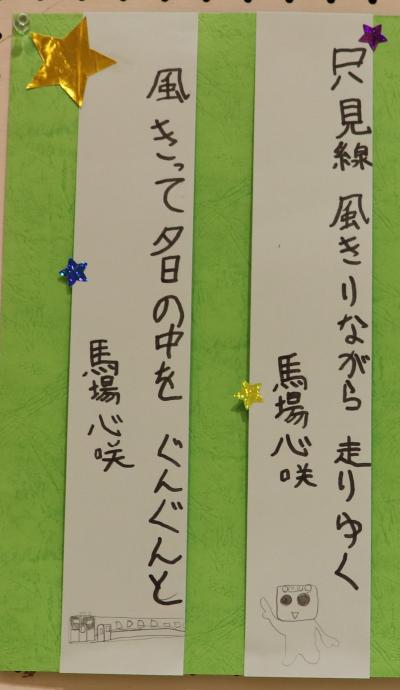 只見線 風きりながら 走りゆく
馬場心咲
風きって夕日の中を ぐんぐんと
馬場心咲